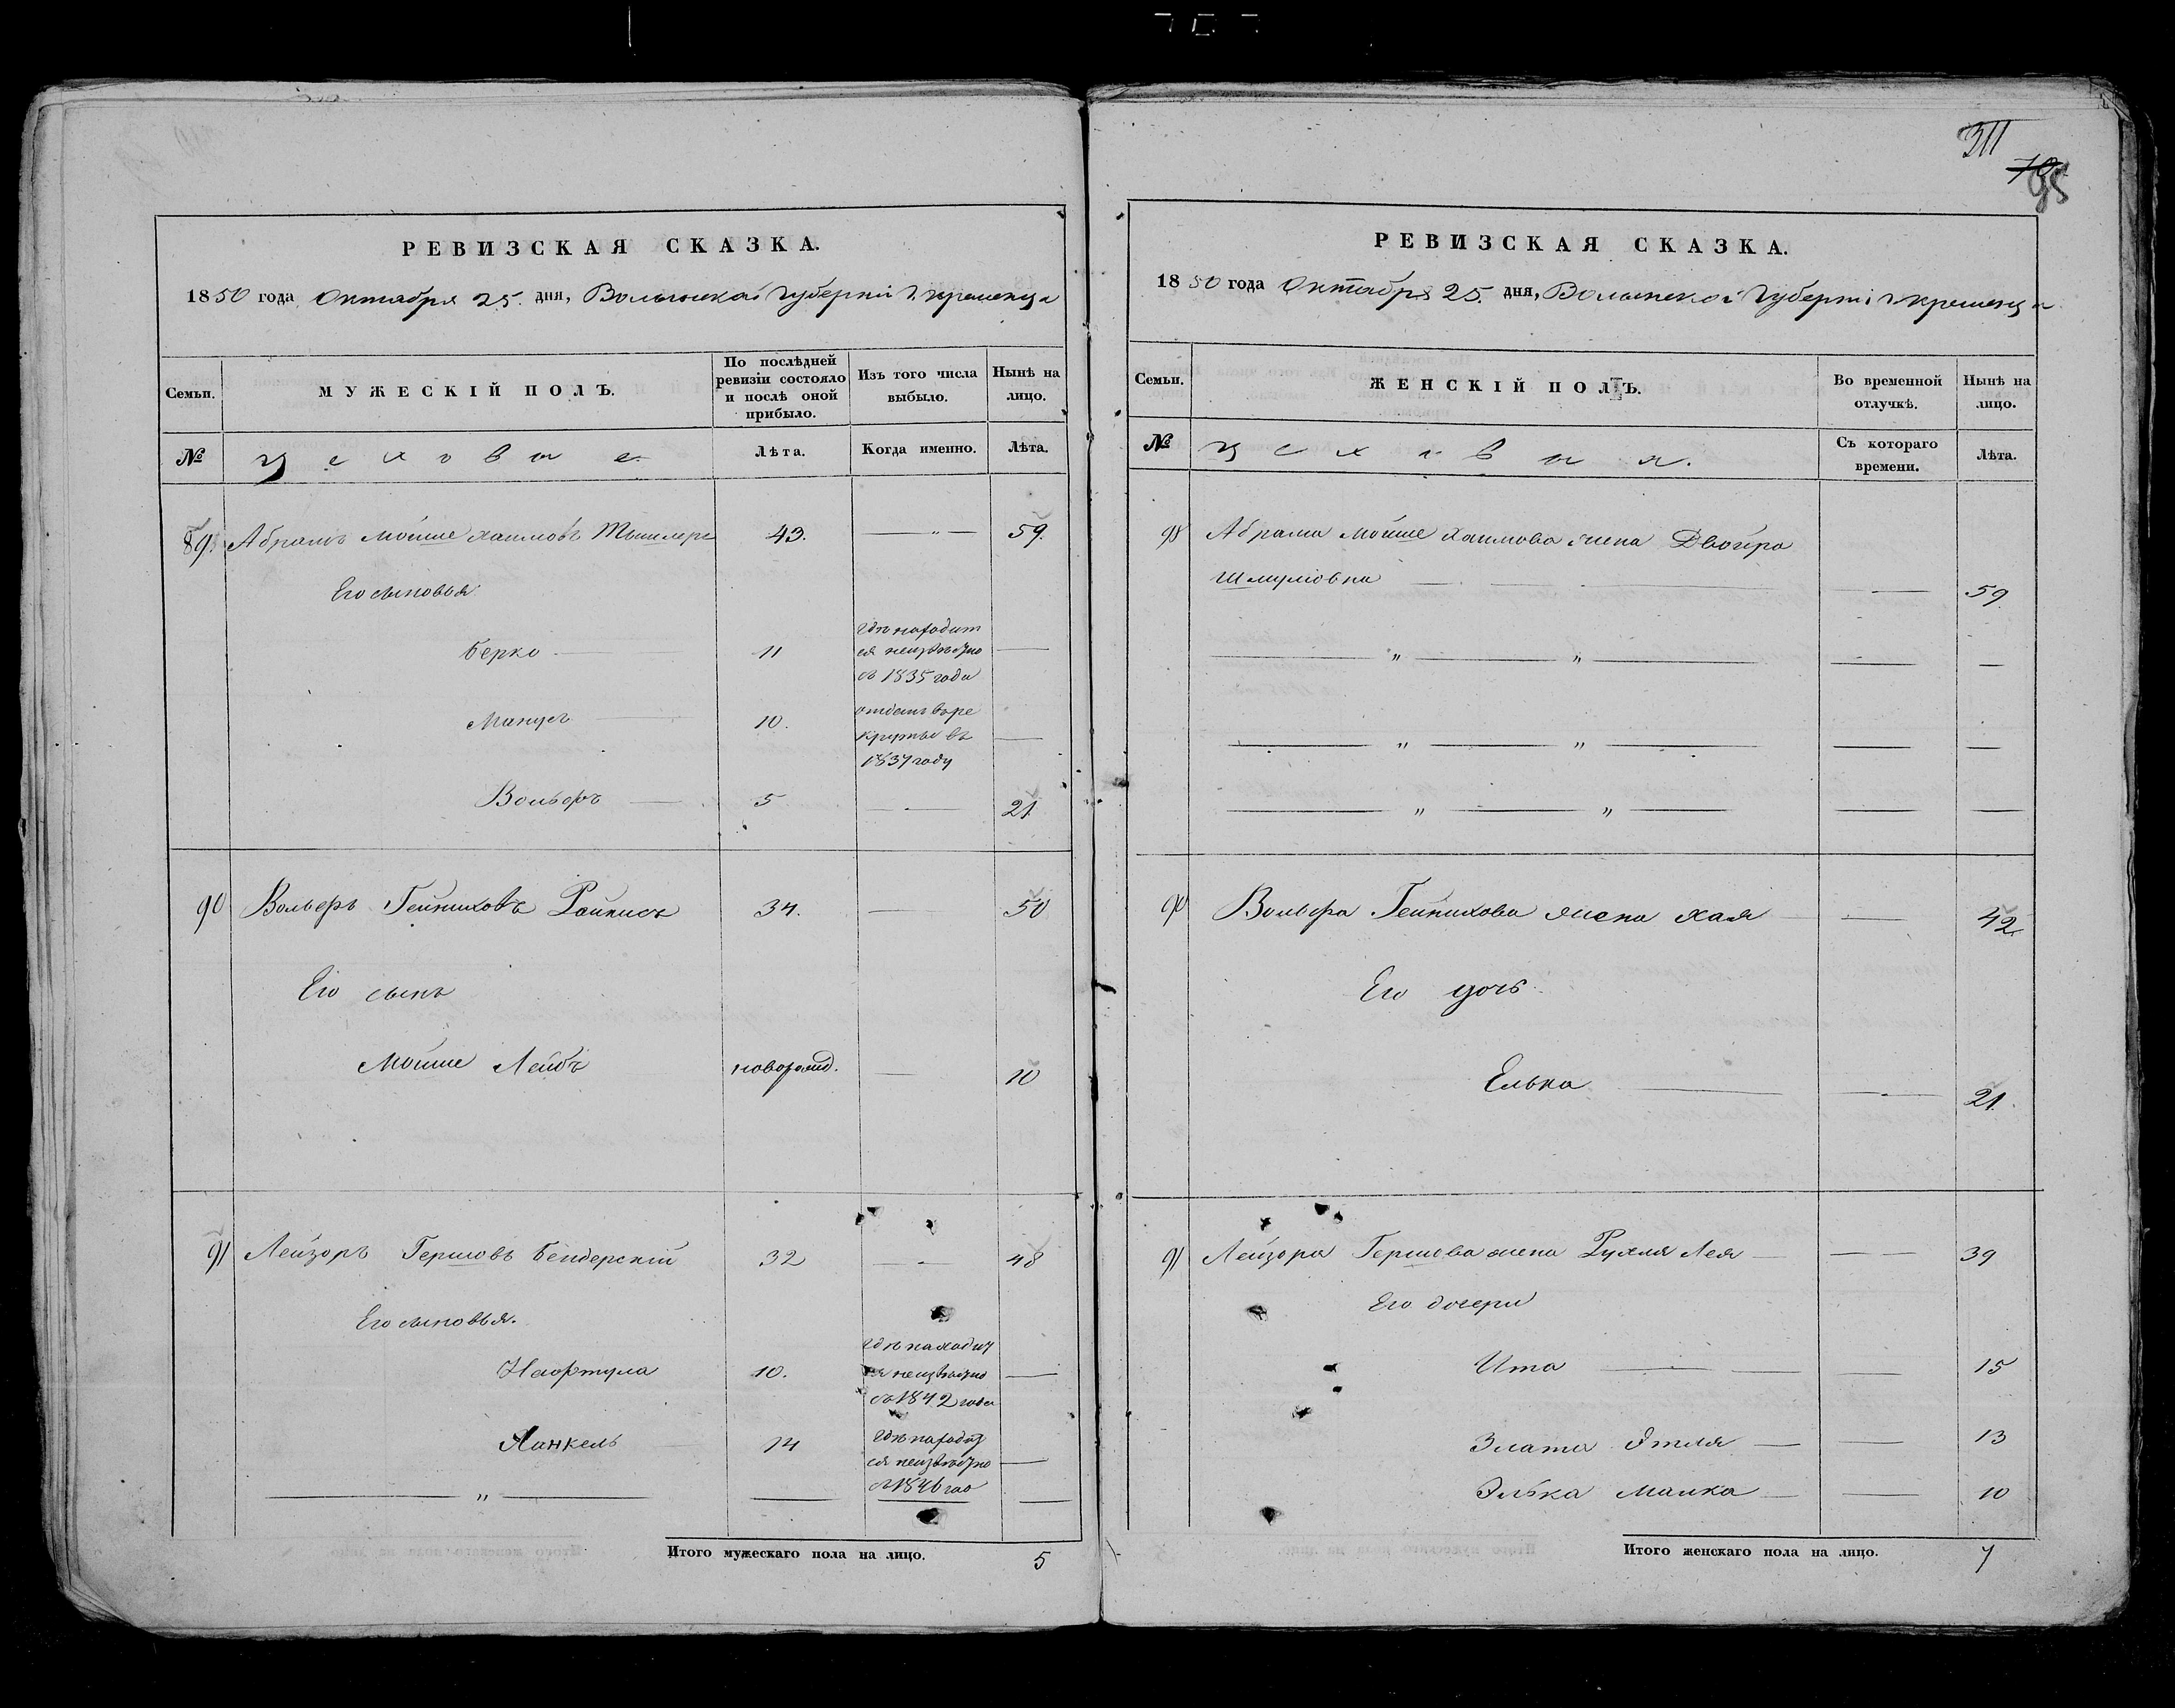 311
70
95
РЕВИЗСКАЯ СКАЗКА.
1850 года Октября 25. дня, Волынской Губерніи г. Кременца
Семьи.
МУЖЕСКІЙ ПОЛЪ.
По послѣдней ревизіи состояло и послѣ оной прибыло.
Изъ того числа выбыло.
Нынѣ на лицо.
№
цеховые
Лѣта.
Когда именно.
Лѣта.
89 Абрамъ Мойше Хаимовъ Тышлеръ 43. — " — 59.
Его сыновья
Берко — 11 гдѣ находит
ся неизвѣстно —
съ 1835 года
Манусъ — 10. отданъ въ ре
круты въ —
1837 году
Вольфъ — 5 — 21
90 Вольфъ Гейниховъ Райнисъ 34. — 50
Его сынъ
Мойше Лейбъ новорожд. — 10
91 Лейзоръ Гершовъ Бендерскій 32 — 48
Его сыновья.
Нафтула 10. гдѣ находит
ся неизвѣстно —
съ 1842 года
Янкель 14 гдѣ находит
ся неизвѣстно —
съ 1846 год
— " — — — —
Итого мужескаго пола на лицо. 5
РЕВИЗСКАЯ СКАЗКА.
1850 года Октября 25. дня, Волынской Губерніи г. Кременца
Семьи.
ЖЕНСКІЙ ПОЛЪ.
Во временной отлучкѣ.
Нынѣ на лицо.
№
цеховыя.
Съ котораго времени.
Лѣта.
Абрама Мойше Хаимова жена Двойра
Шмулювна — — — — 59
— " — " — — —
— " — " — — —
— " — " — — —
90 Вольфа Гейнихова жена Хая — — 42
Его дочь
Елька — — 21.
91 Лейзора Гершева жена Рухля Лея — — 39
Его дочери
Ита — — — 15
Злата Этля — — 13
Элька Малка — — 10
Итого женскаго пола на лицо. 7